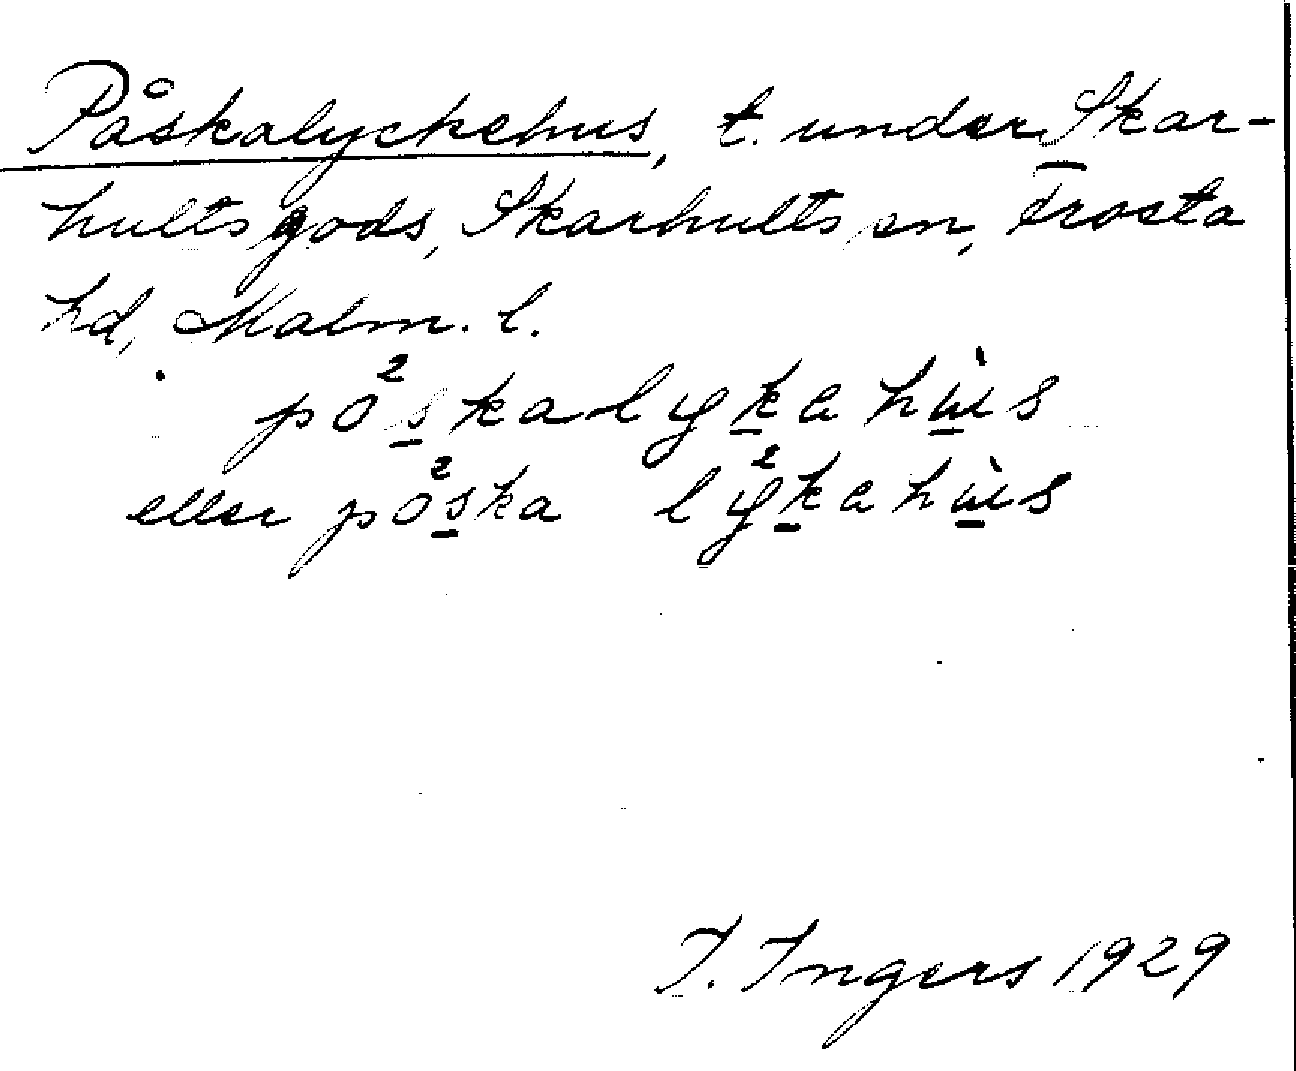 Påskalyckehus, t. under Skar-
hults gods, Skarhults sn, Frosta
hd, Malm. l.
po²s̲kalyk̲ahù̲s
eller po²s̲ka ly²k̲ahù̲s
I. Ingers 1929